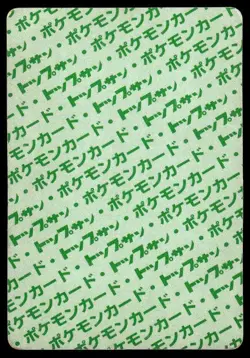 ポケモンカード
トップサン・ポケモンカード
ポケモンカード・トップサン
トップサン・ポケモンカード
ポケモンカード・トップサン
トップサン・ポケモンカード
ポケモンカード・トップサン
トップサン・ポケモンカード
ポケモンカード・トップサン
トップサン・ポケモンカード
ポケモンカード・トップサン
トップサン・ポケモンカード
ポケモンカード